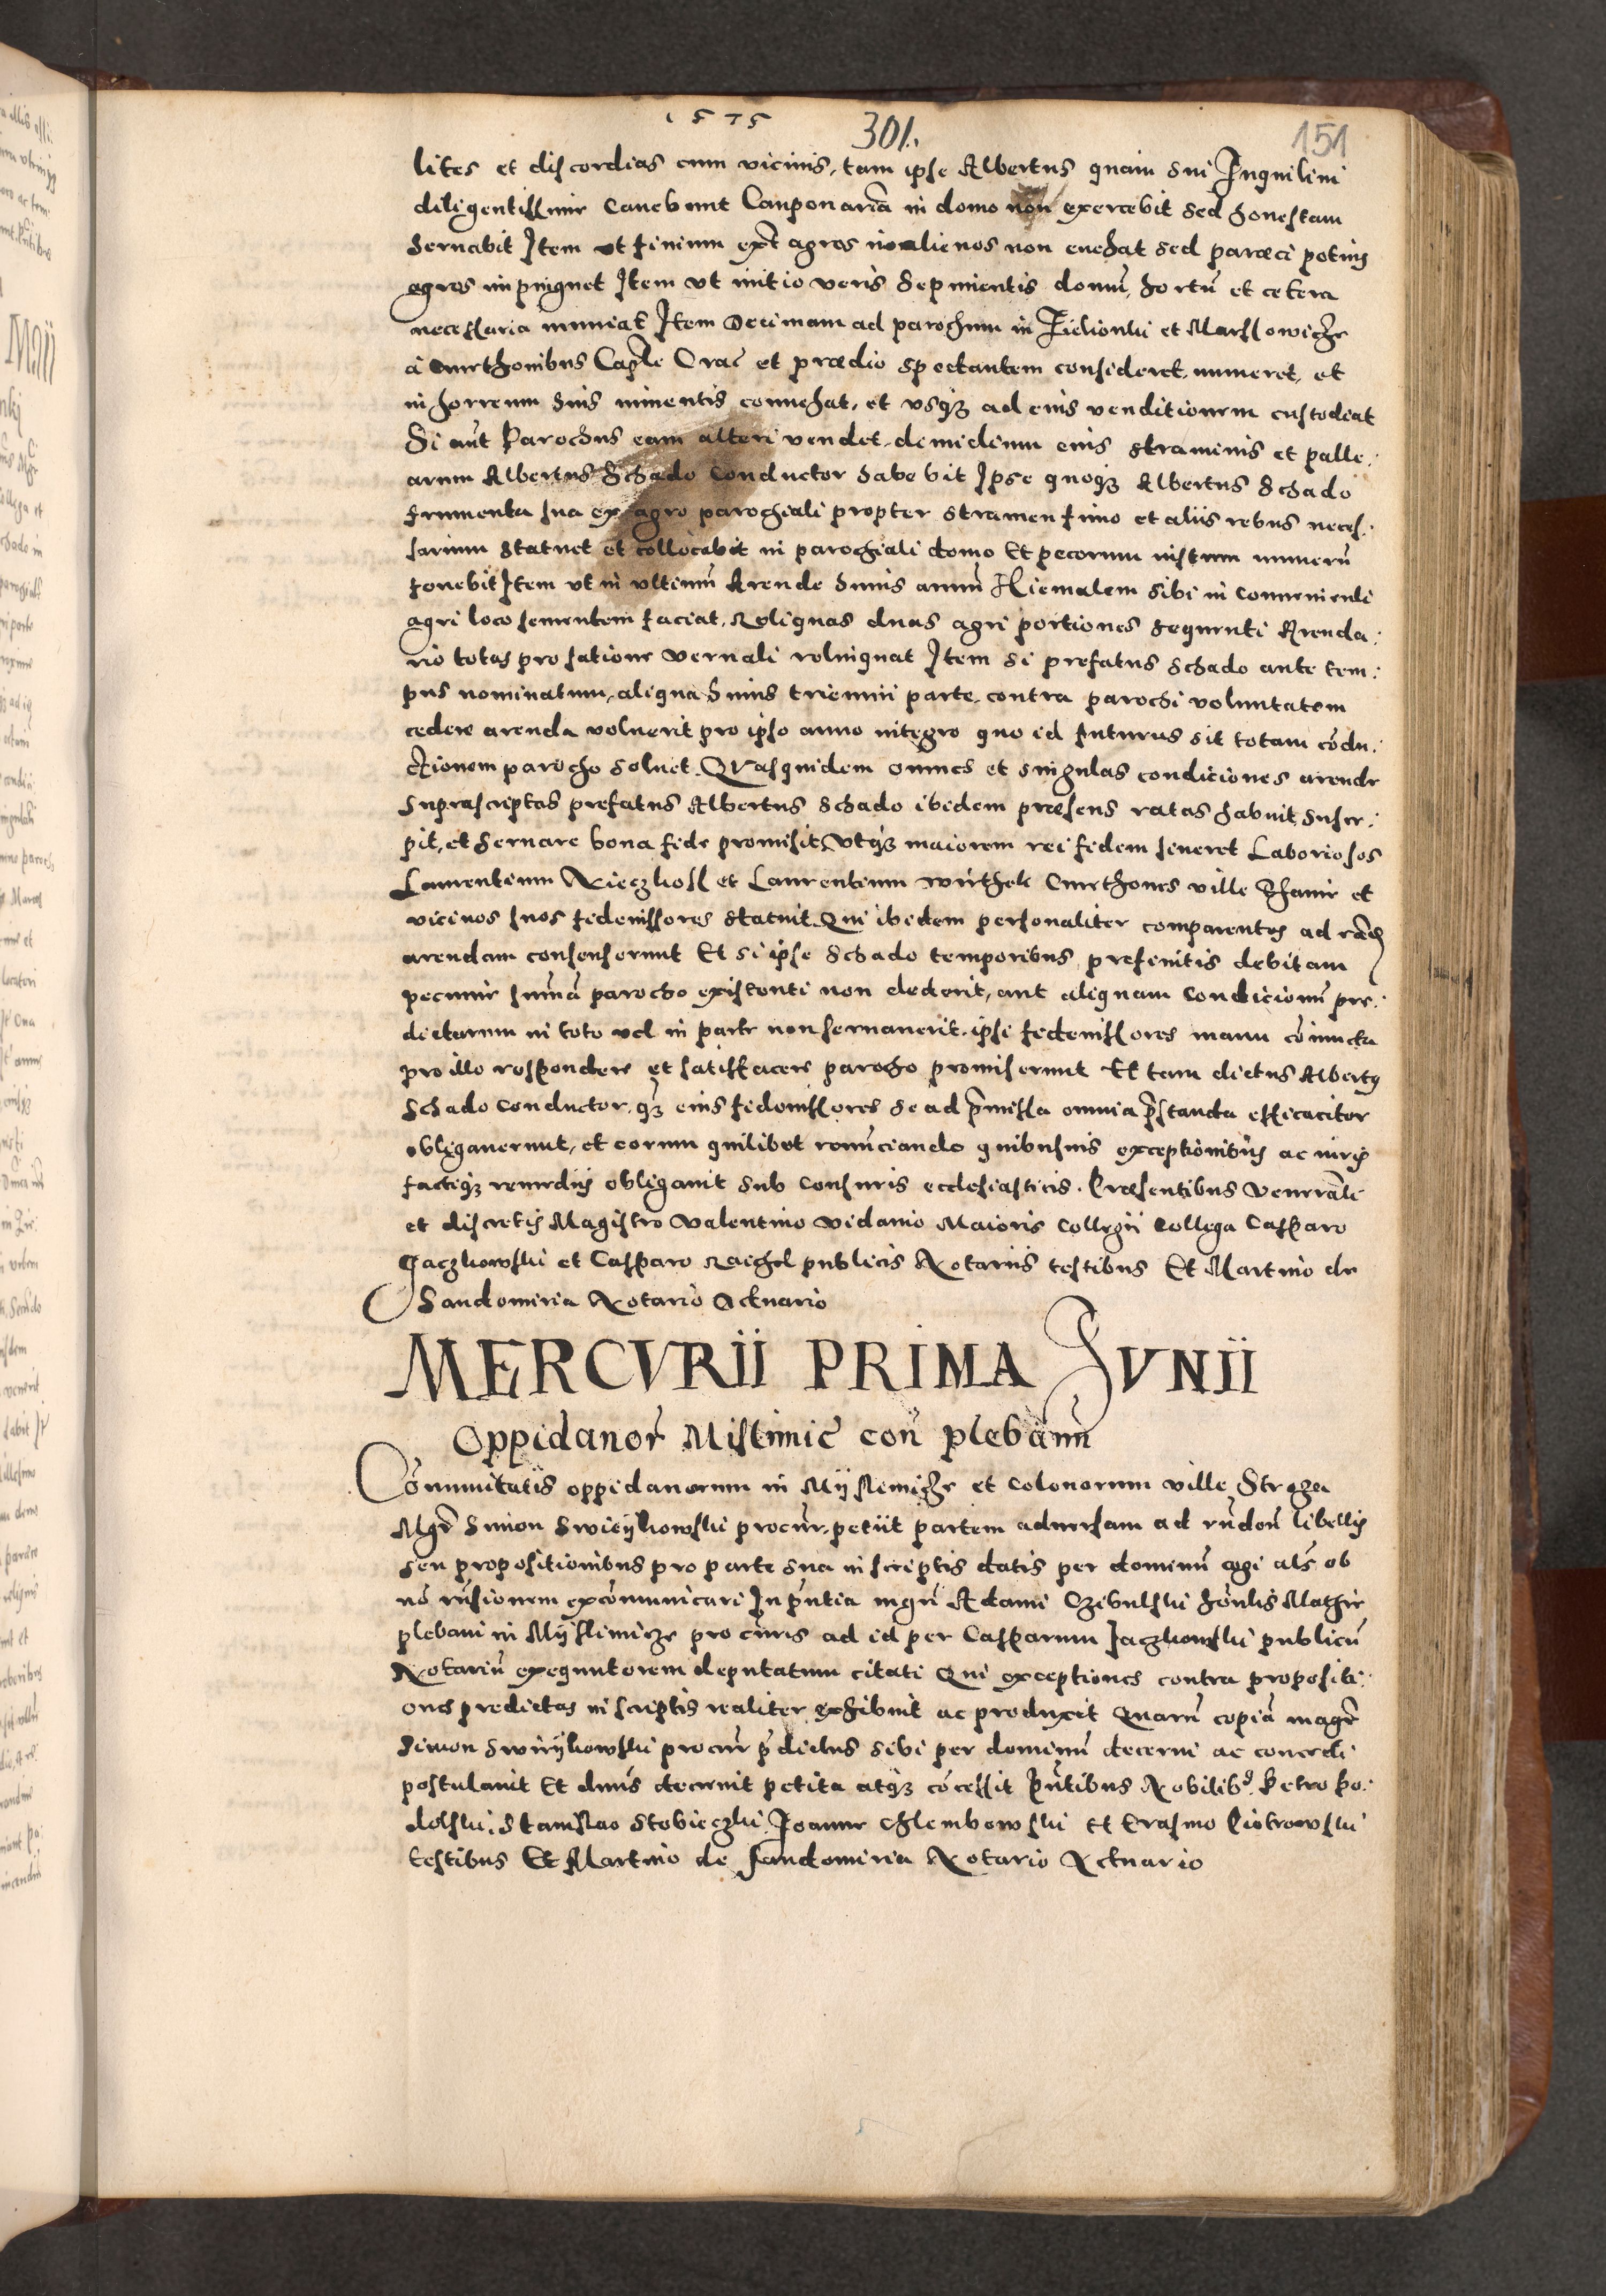 1575
301.
151
lites et discordias cum vicinis, tam ipse Albertus quam sui Inquilini
diligentissime Canebunt Cauponariā in domo non exercebit sed honestam
seruabit Item ut fimum ext agros in alienos non euehat sed paroeci potius
agros impinguet Item vt initio veris sepimentis domū, hortū et cetera
necessaria muniat Item Decimam ad parochum in et
a Cmethonibus Cap̄le Crac̄ et prædio spectantem consideret, numeret, et
in horreum suis iumentis conuehat, et vsq3 ad eius venditionem custodiat
Si aūt Parochus eam alteri vendet, dimidium eius straminis et palle:
arum Albertus Schado Conductor habebit Ipse quoq3 Albertus Schado
frumenta sua ex agro parochiali propter stramen fimo et aliis rebus neces:
sarium statuet et collocabit in parochiali domo Et pecorum iustum numerū
fouebit Item vt in vltimū Arende huius annū Hiemalem sibi in Conuenienti
agri loco sementem faciat, Reliquas duas agri portiones sequenti Arenda:
rio totas pro satione vernali relinquat Item si prefatus Schado ante tem:
pus nominatum, aliqua huius triennii parte, contra parochi voluntatem
cedere arenda voluerit pro ipso anno integro quo id futurus sit totam cōdu:
ctionem parocho soluet. Quasquidem omnes et singulas condiciones arende
suprascriptas prefatus Albertus Schado ibidem præsens ratas habuit, susce:
pit, et seruare bona fide promisit, Vtq3 maiorem rei fidem faceret Laboriosos
Laurentium et Laurentium Cmethones ville et
vicinos suos fideiussores statuit Qui ibidem personaliter comparentes ad
arendam consenserunt Et si ipse Schado temporibus prefinitis debitam
pecunie summā parocho existenti non dederit, aut aliquam Condicionū pre:
dictarum in toto vel in parte non seruauerit, ipsi fideiussores manu cōiuncta
pro illo respondere et satisfacere parocho promiserunt Et tam dictus Albertus
Schado Conductor, q3 eius fideiussores se ad p̄missa omnia p̄standa efficaciter
obligauerunt, et eorum quilibet renūciando quibusuis exceptionibus ac iuris
factiq3 remediis obligauit sub Censuris ecclesiasticis. Præsentibus Venerāli
et discretis Magistro Valentino Vidauio Maioris Collegii Collega Casparo
Jaczkowski et Casparo publicis Notariis testibus Et Martino de
Sandomiria Notario Actuario
MERCVRII PRIMA JVNII
Oppidanor̄ Mislimic̄ con̄ plebanū
Cōmunitatis oppidanorum in et Colonorum ville Stroza
Mgr̄ Simon procur̄, petiit partem aduersam ad rn̄den̄ libellis
seu propositionibus pro parte sua in scriptis datis per dominū cogi al̄s ob
nō rn̄sionem excōmunicari In p̄ntia mgri Adami Czibulski hōnlis Mathie
plebani in procur̄is ad id per Casparum Jaczkowski publicū
Notariū exequutorem deputatum citati Qui exceptiones contra propositi:
ones predictas in scriptis realiter exhibuit ac produxit Quarū copiā magr̄
Simon procur̄ p̄dictus sibi per dominū decerni ac concedi
postulauit Et dn̄us decreuit petita atq3 cōcessit P̄ntibus Nobilib9 Petro Po:
dolski, Stanislao Joanne Chlembowski et Erasmo Piotrowski
testibus Et Martino de Sandomiria Notario Actuario